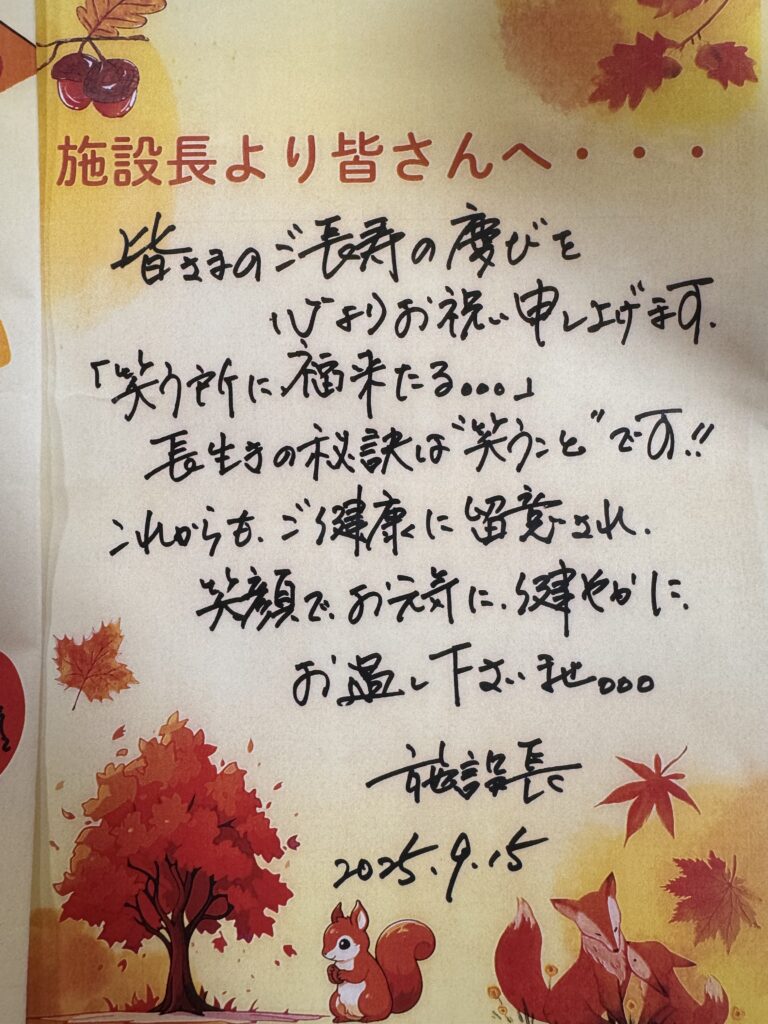 施設長より皆さんへ・・・
皆さまのご長寿の慶びを
心よりお祝い申し上げます.
「笑う所に福来たる...」
長生きの秘訣は"笑うこと"です!!
これからも、ご健康に留意され、
笑顔で、お元気に、健やかに、
お過し下さいませ...
施設長
2025.9.15